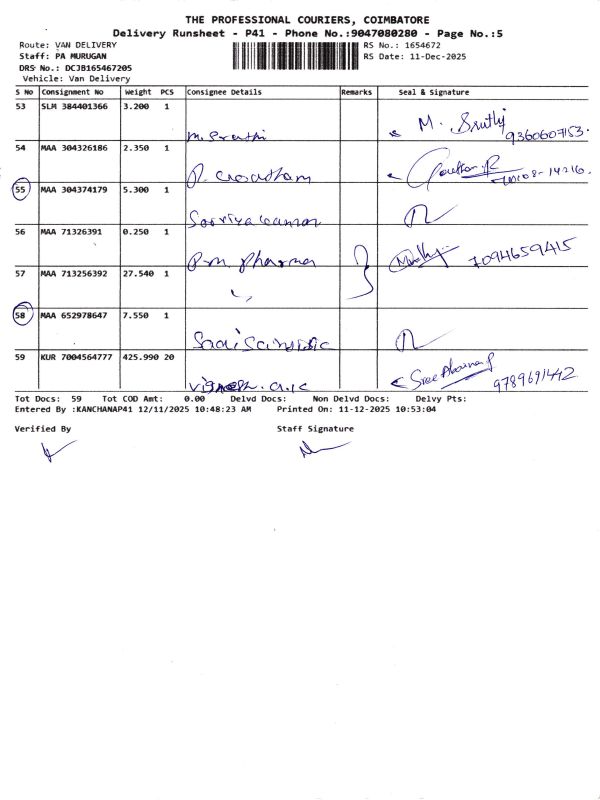 THE PROFESSIONAL COURIERS, COIMBATORE
Delivery Runsheet - P41 - Phone No.:9047080280 - Page No.:5
Route: VAN DELIVERY RS No.: 1654672
Staff: PA MURUGAN RS Date: 11-Dec-2025
DRS No.: DCJB165467205
Vehicle: Van Delivery
S No Consignment No Weight PCS Consignee Details Remarks Seal & Signature
53 SLM 384401366 3.200 1
M. Sruthi 9360607153
54 MAA 304326186 2.350 1
55 MAA 304374179 5.300 1
56 MAA 71326391 0.250 1
P.m. pharma 7094659415
57 MAA 713256392 27.540 1
58 MAA 652978647 7.550 1
59 KUR 7004564777 425.990 20
Sree Pharma 9789691442
Tot Docs: 59 Tot COD Amt: 0.00 Delvd Docs: Non Delvd Docs: Delvy Pts:
Entered By :KANCHANAP41 12/11/2025 10:48:23 AM Printed On: 11-12-2025 10:53:04
Verified By Staff Signature